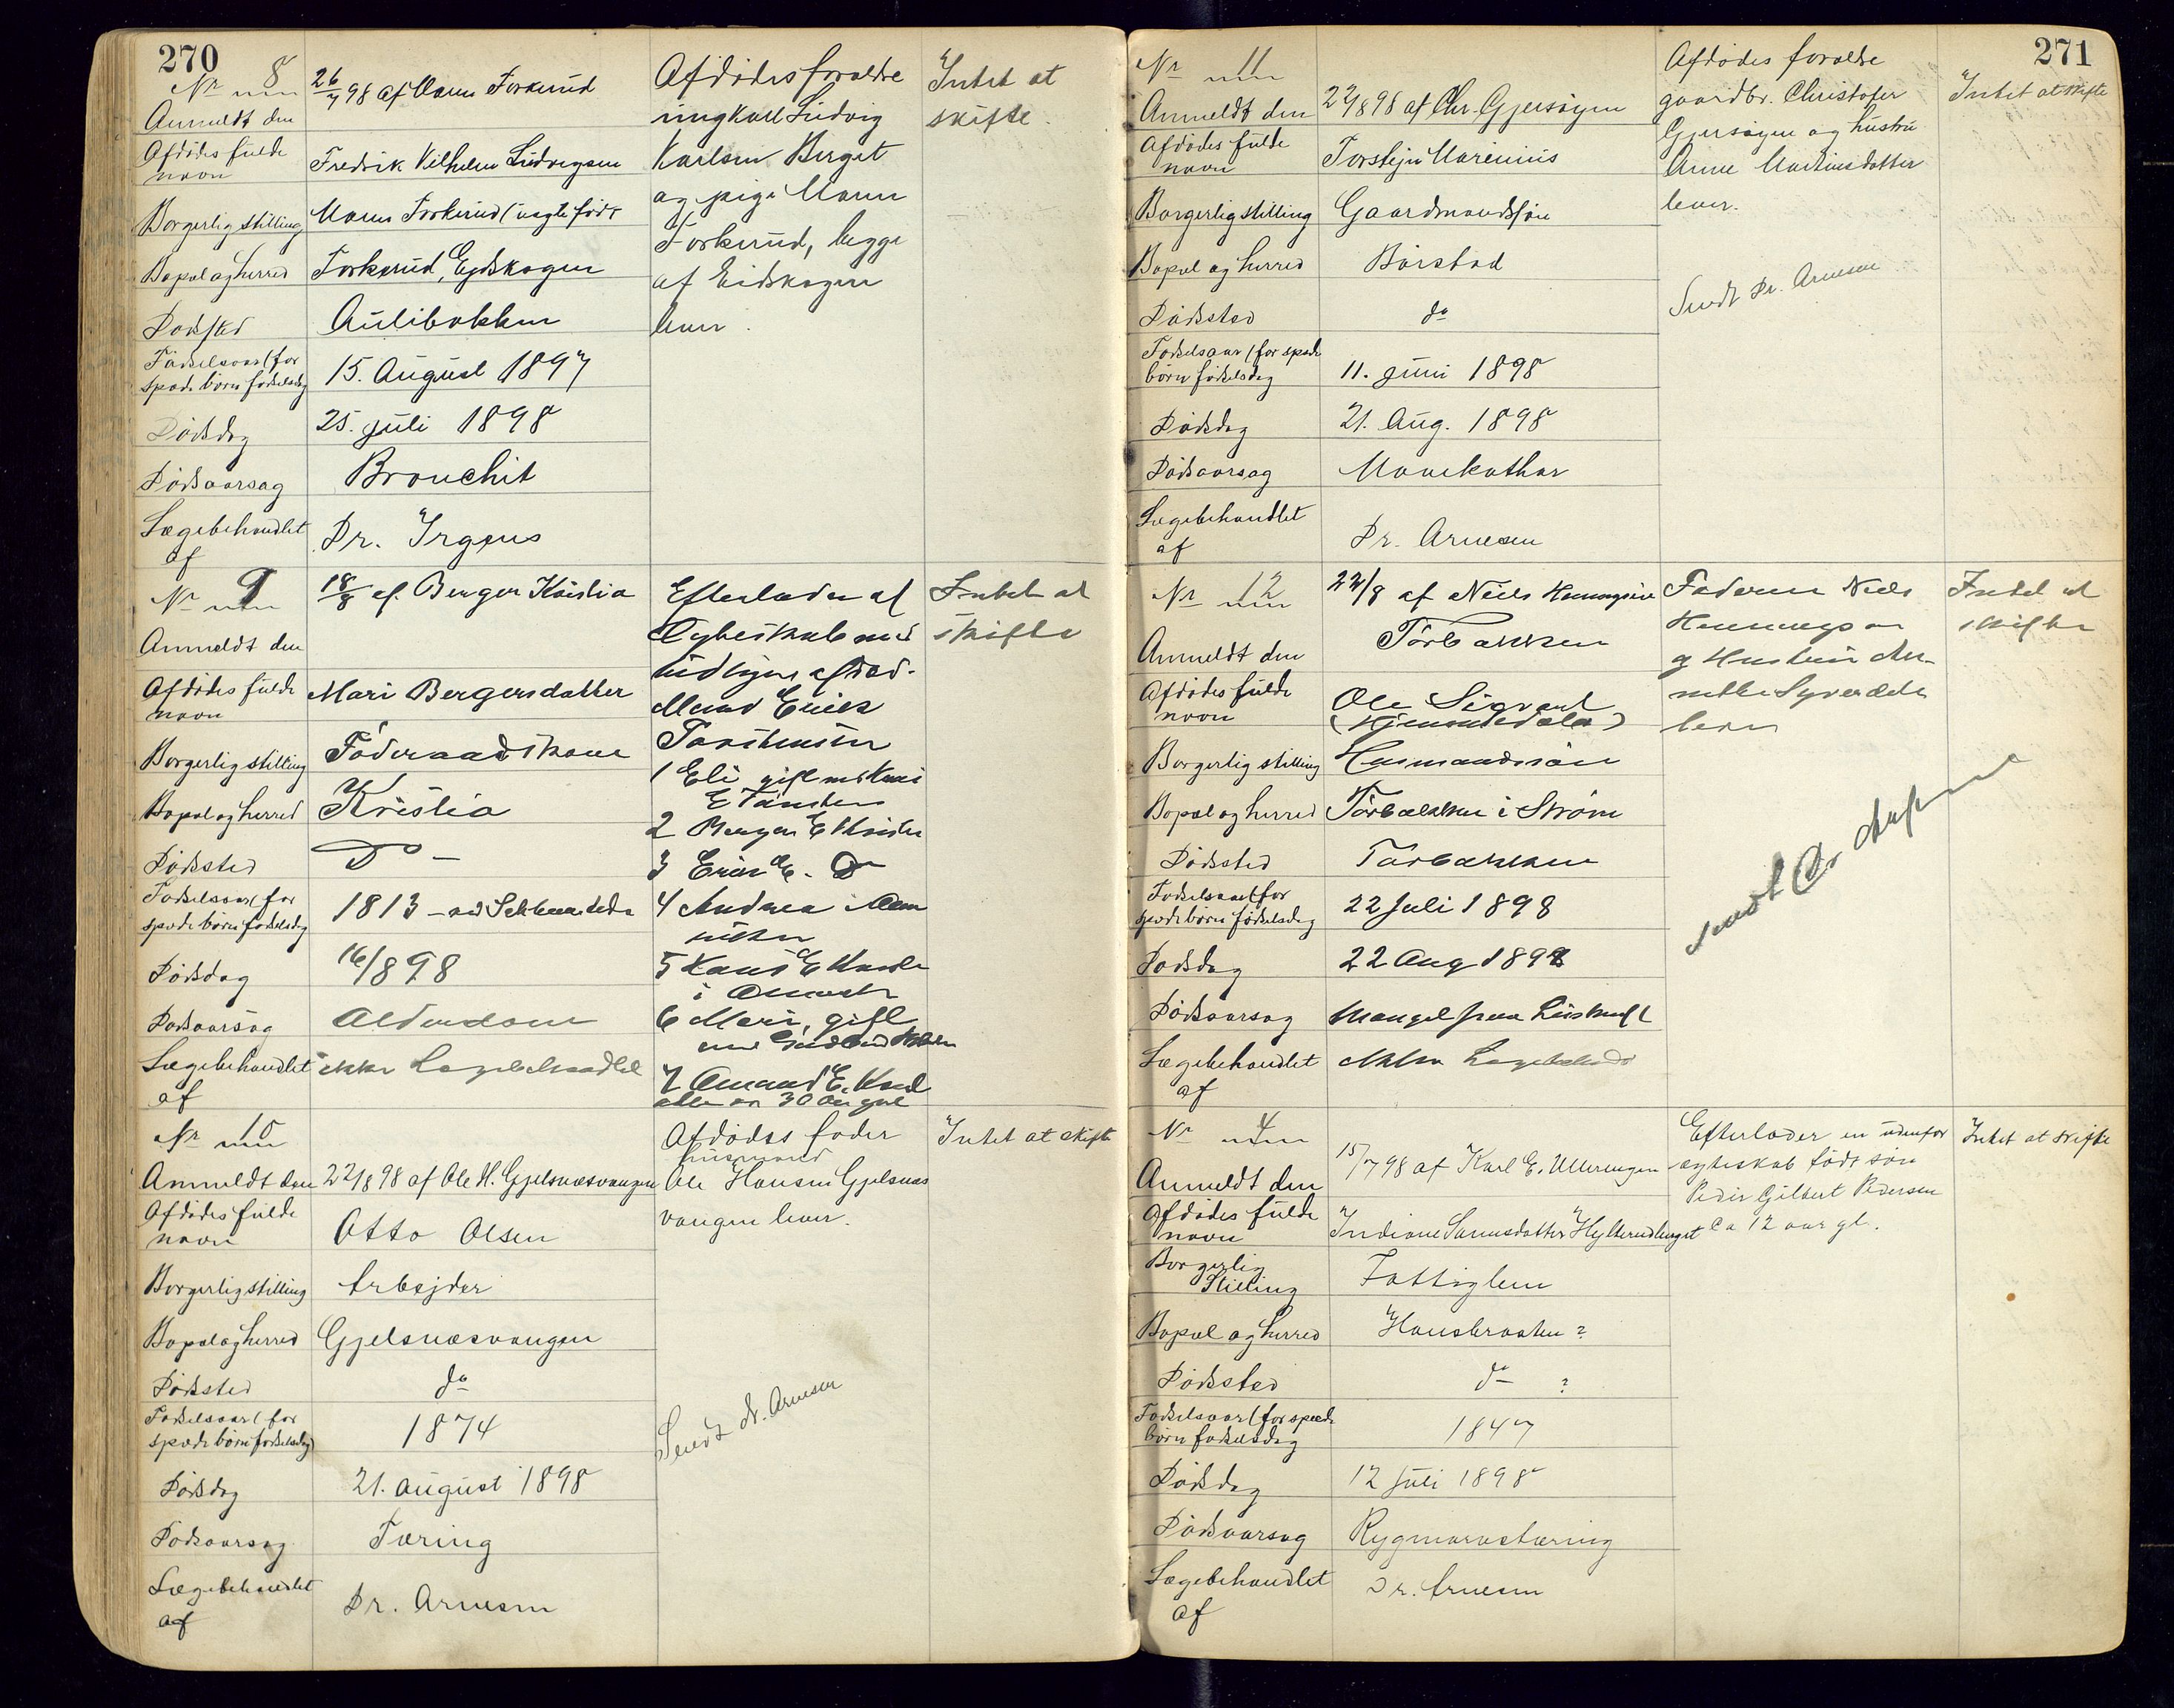 270
Nr 8
26/7 98 af Maren Torkerud
Anmeldt den
Afdødes fulde navn
Fredrik Vilhelm Ludvigsen
Borgerlig stilling
Maren Torkerud (uægte født
Bopæl og herred
Torkerud, Ejdskogen
Dødsted
Aulibakken
Fødselsaar (for
spæde børn fødselsdag
15. August 1897
Dødsdag
25. juli 1898
Dødsaarsag
Bronchit
Lægebehandlet
af
Dr. Irgens
Afdødes forældre
ungkarl Ludvig
Karlsen Berget
og pige Maren
Torkerud, begge
af Eidskogen
lever.
Intet at
skifte.
Nr 9
18/8 af Berger Kristia
Anmeldt den
Afdødes fulde
navn
Mari Bergersdatter
Borgerlig stilling
Føderaadskone
Bopæl og herred
Kristia
Dødsted
Do –
Fødselsaar (for
spæde børn fødselsdag
1813
Dødsdag
16/8 98
Dødsaarsag
Alderdom
Lægebehandlet
af
ikke Lægebehandlet
Efterlader af
Ægteskab med
tidligere afdød.
Mand Erick
Torstensen
1 Eli gift med
2 Berger E
3 Erick E. Do
4 Andrea i
5 E
i
6 Mari, gift
7 Amund E.
alle over 30 Aar gml
Intet at
skifte
Nr 10
Anmeldt den
22/8 98 af Ole H. Gjelsnæsvangen
Afdødes fulde
navn
Otto Olsen
Borgerlig stilling
Arbejder
Bopæl og herred
Gjelsnæsvangen
Dødsted
do
Fødselsaar (for
spæde børn fødselsdag)
1874
Dødsdag
21. august 1898
Dødsaarsag
Tæring
Lægebehandlet
af
Dr. Arnesen
Afdødes fader
husmand
Ole Hansen Gjelsnæs
vangen lever.
Sendt dr. Arnesen
Intet at skifte
271
Nr 11
Anmeldt den
22/8 98 af Chr. Gjersøyen
Afdødes fulde
navn
Torstejn Marenius
Borgerlig stilling
Gaardmandssøn
Bopæl og herred
Børstad
Dødsted
do
Fødselsaar (for spæde
børn fødselsdag
11. juni 1898
Dødsdag
21. Aug. 1898
Dødsaarsag
Mavekathar
Lægebehandlet
af
Dr. Arnesen
Afdødes forældre
gaardbr. Christofer
Gjersøyen og hustru
Anne Martinsdatter
lever.
Sendt Dr. Arnesen
Intet at skifte
Nr 12
22/8 af Niels Henningsen
Tørbakken
Anmeldt den
Afdødes fulde
navn
Ole Sigvart
Borgerlig stilling
Husmandssøn
Bopæl og herred
Tørbakken i Strøm
Dødsted
Tørbakken
Fødselsaar (for
spæde børn fødselsdag
22 Juli 1898
Dødsdag
22 Aug 1898
Dødsaarsag
Mangel paa Livskraft
Lægebehandlet
af
ikke Lægebehandl
Faderen Niels
Henningsen
og Hustru
lever
sendt Dr
Intet at
skifte
Nr 4
Anmeldt den
15/7 98 af Karl E. Ullerengen
Afdødes fulde
navn
Indiane Larensdatter
Borgerlig
Stilling
Fattiglem
Bopæl og herred
Hansbraaten ?
Dødsted
do ?
Fødselsaar (for spæde
børn fødselsdag
1847
Dødsdag
12 juli 1898
Dødsaarsag
Rygmarvstæring
Lægebehandlet
af
Dr. Arnesen
Efterlader en udenfor
ægteskab født søn
Peder Gilbert Pedersen
ca 12 aar gl.
Intet at skifte